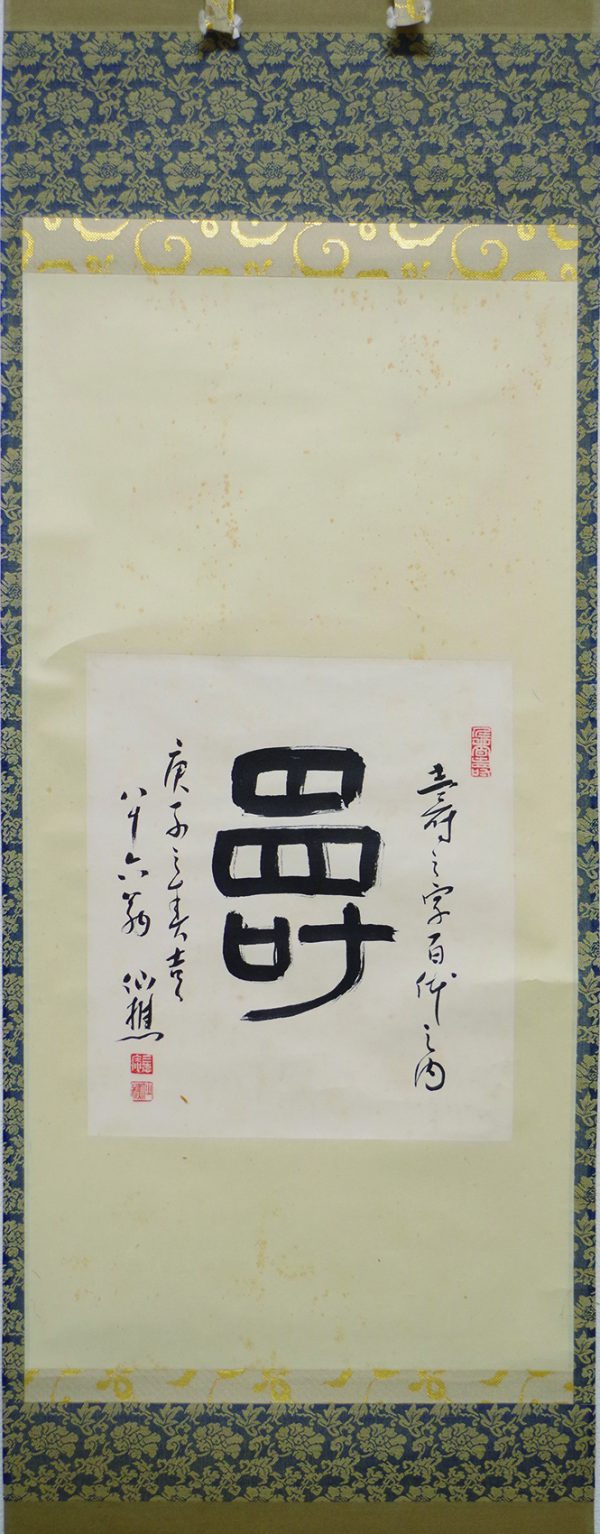 壽之字百体之内
壽
庚子之春書
八十六翁 仙樵